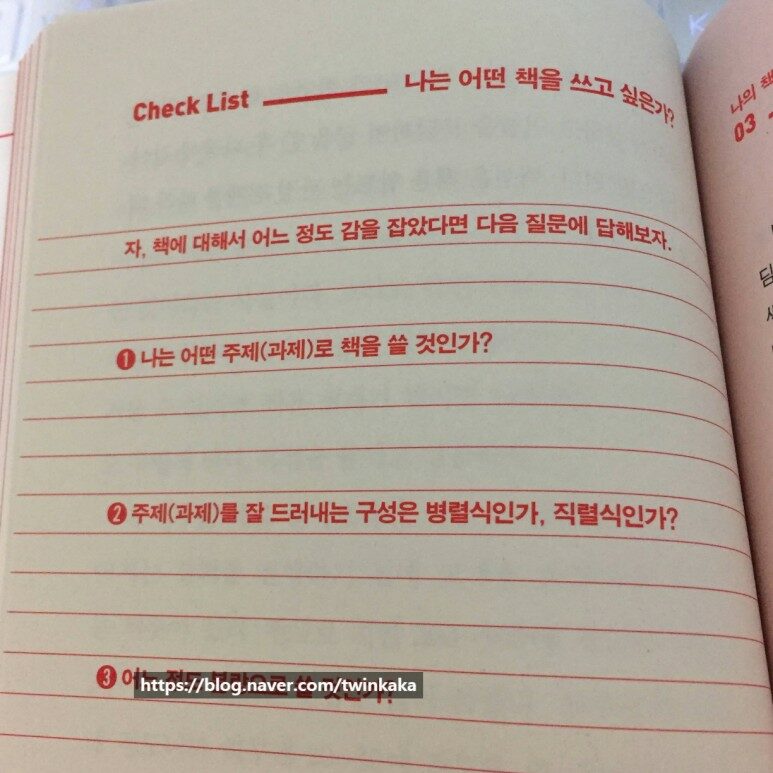 Check List 나는 어떤 책을 쓰고 싶은가?
자, 책에 대해서 어느 정도 감을 잡았다면 다음 질문에 답해보자.
❶ 나는 어떤 주제(과제)로 책을 쓸 것인가?
❷ 주제(과제)를 잘 드러내는 구성은 병렬식인가, 직렬식인가?
❸ 어느 정도 분량으로 쓸 것인가?
https://blog.naver.com/twinkaka
나의 책
03